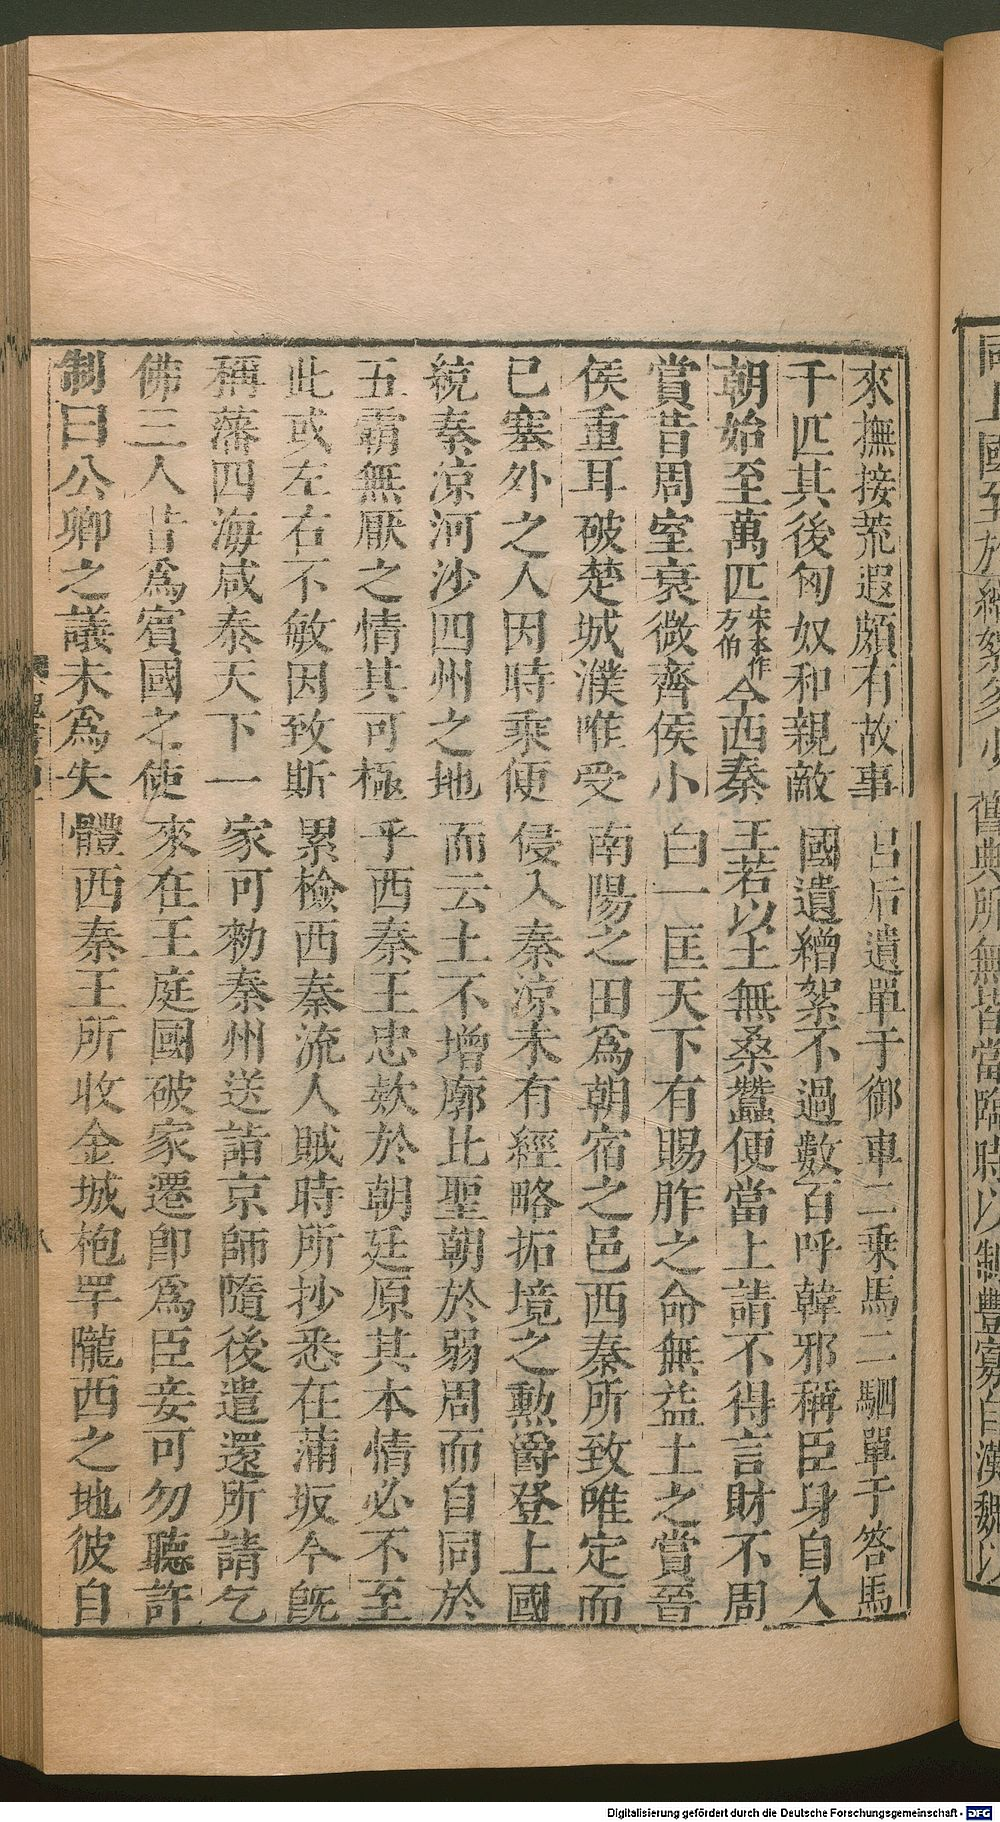 來撫接荒遐頗有故事呂后遺單于御車二乘馬二駟單于答馬
千匹其後匈奴和親敵國遺繒絮不過數百呼韓邪稱臣身自入
朝始至萬匹宋本作方伯今西秦王若以土無桑蠶便當上請不得言財不周
賞昔周室衰微齊侯小白一匡天下有賜胙之命無益土之賞晉
侯重耳破楚城濮唯受南陽之田爲朝宿之邑西秦所致唯定而
已塞外之人因時乘便侵入秦涼未有經略拓境之勲爵登上國
統秦涼河沙四州之地而云土不增廓比聖朝於弱周而自同於
五霸無厭之情其可極乎西秦王忠欵於朝廷原其本情必不至
此或左右不敏因致斯累檢西秦流人賊時所抄悉在蒲坂今旣
稱藩四海咸泰天下一家可勑秦州送詣京師隨後遣還所請乞
佛三人昔爲賓國之使來在王庭國破家遷卽爲臣妾可勿聽許
制曰公卿之議未爲失體西秦王所收金城枹罕隴西之地彼自
Digitalisierung gefördert durch die Deutsche Forschungsgemeinschaft - DFG